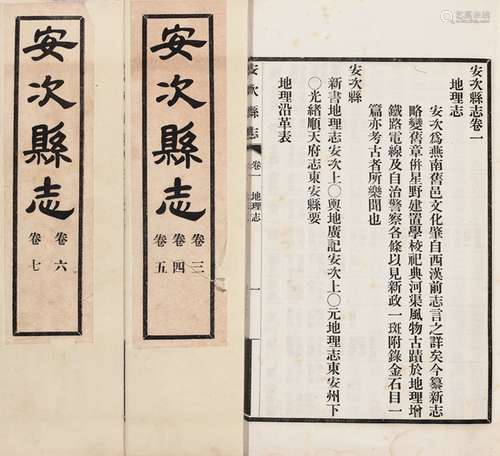 安次縣志卷一
地理志
安次爲燕南舊邑文化肇自西漢前志言之詳矣今纂新志
略變舊章併星野建置學校祀典河渠風物古蹟於地理增
鐵路電線及自治警察各條以見新政一斑附錄金石目一
篇亦考古者所樂聞也
安次縣
新書地理志安次上〇輿地廣記安次上〇元地理志東安州下
〇光緒順天府志東安縣要
地理沿革表
安次縣志 卷一 地理志 一
安次縣志
卷三
卷四
卷五
安次縣志
卷六
卷七